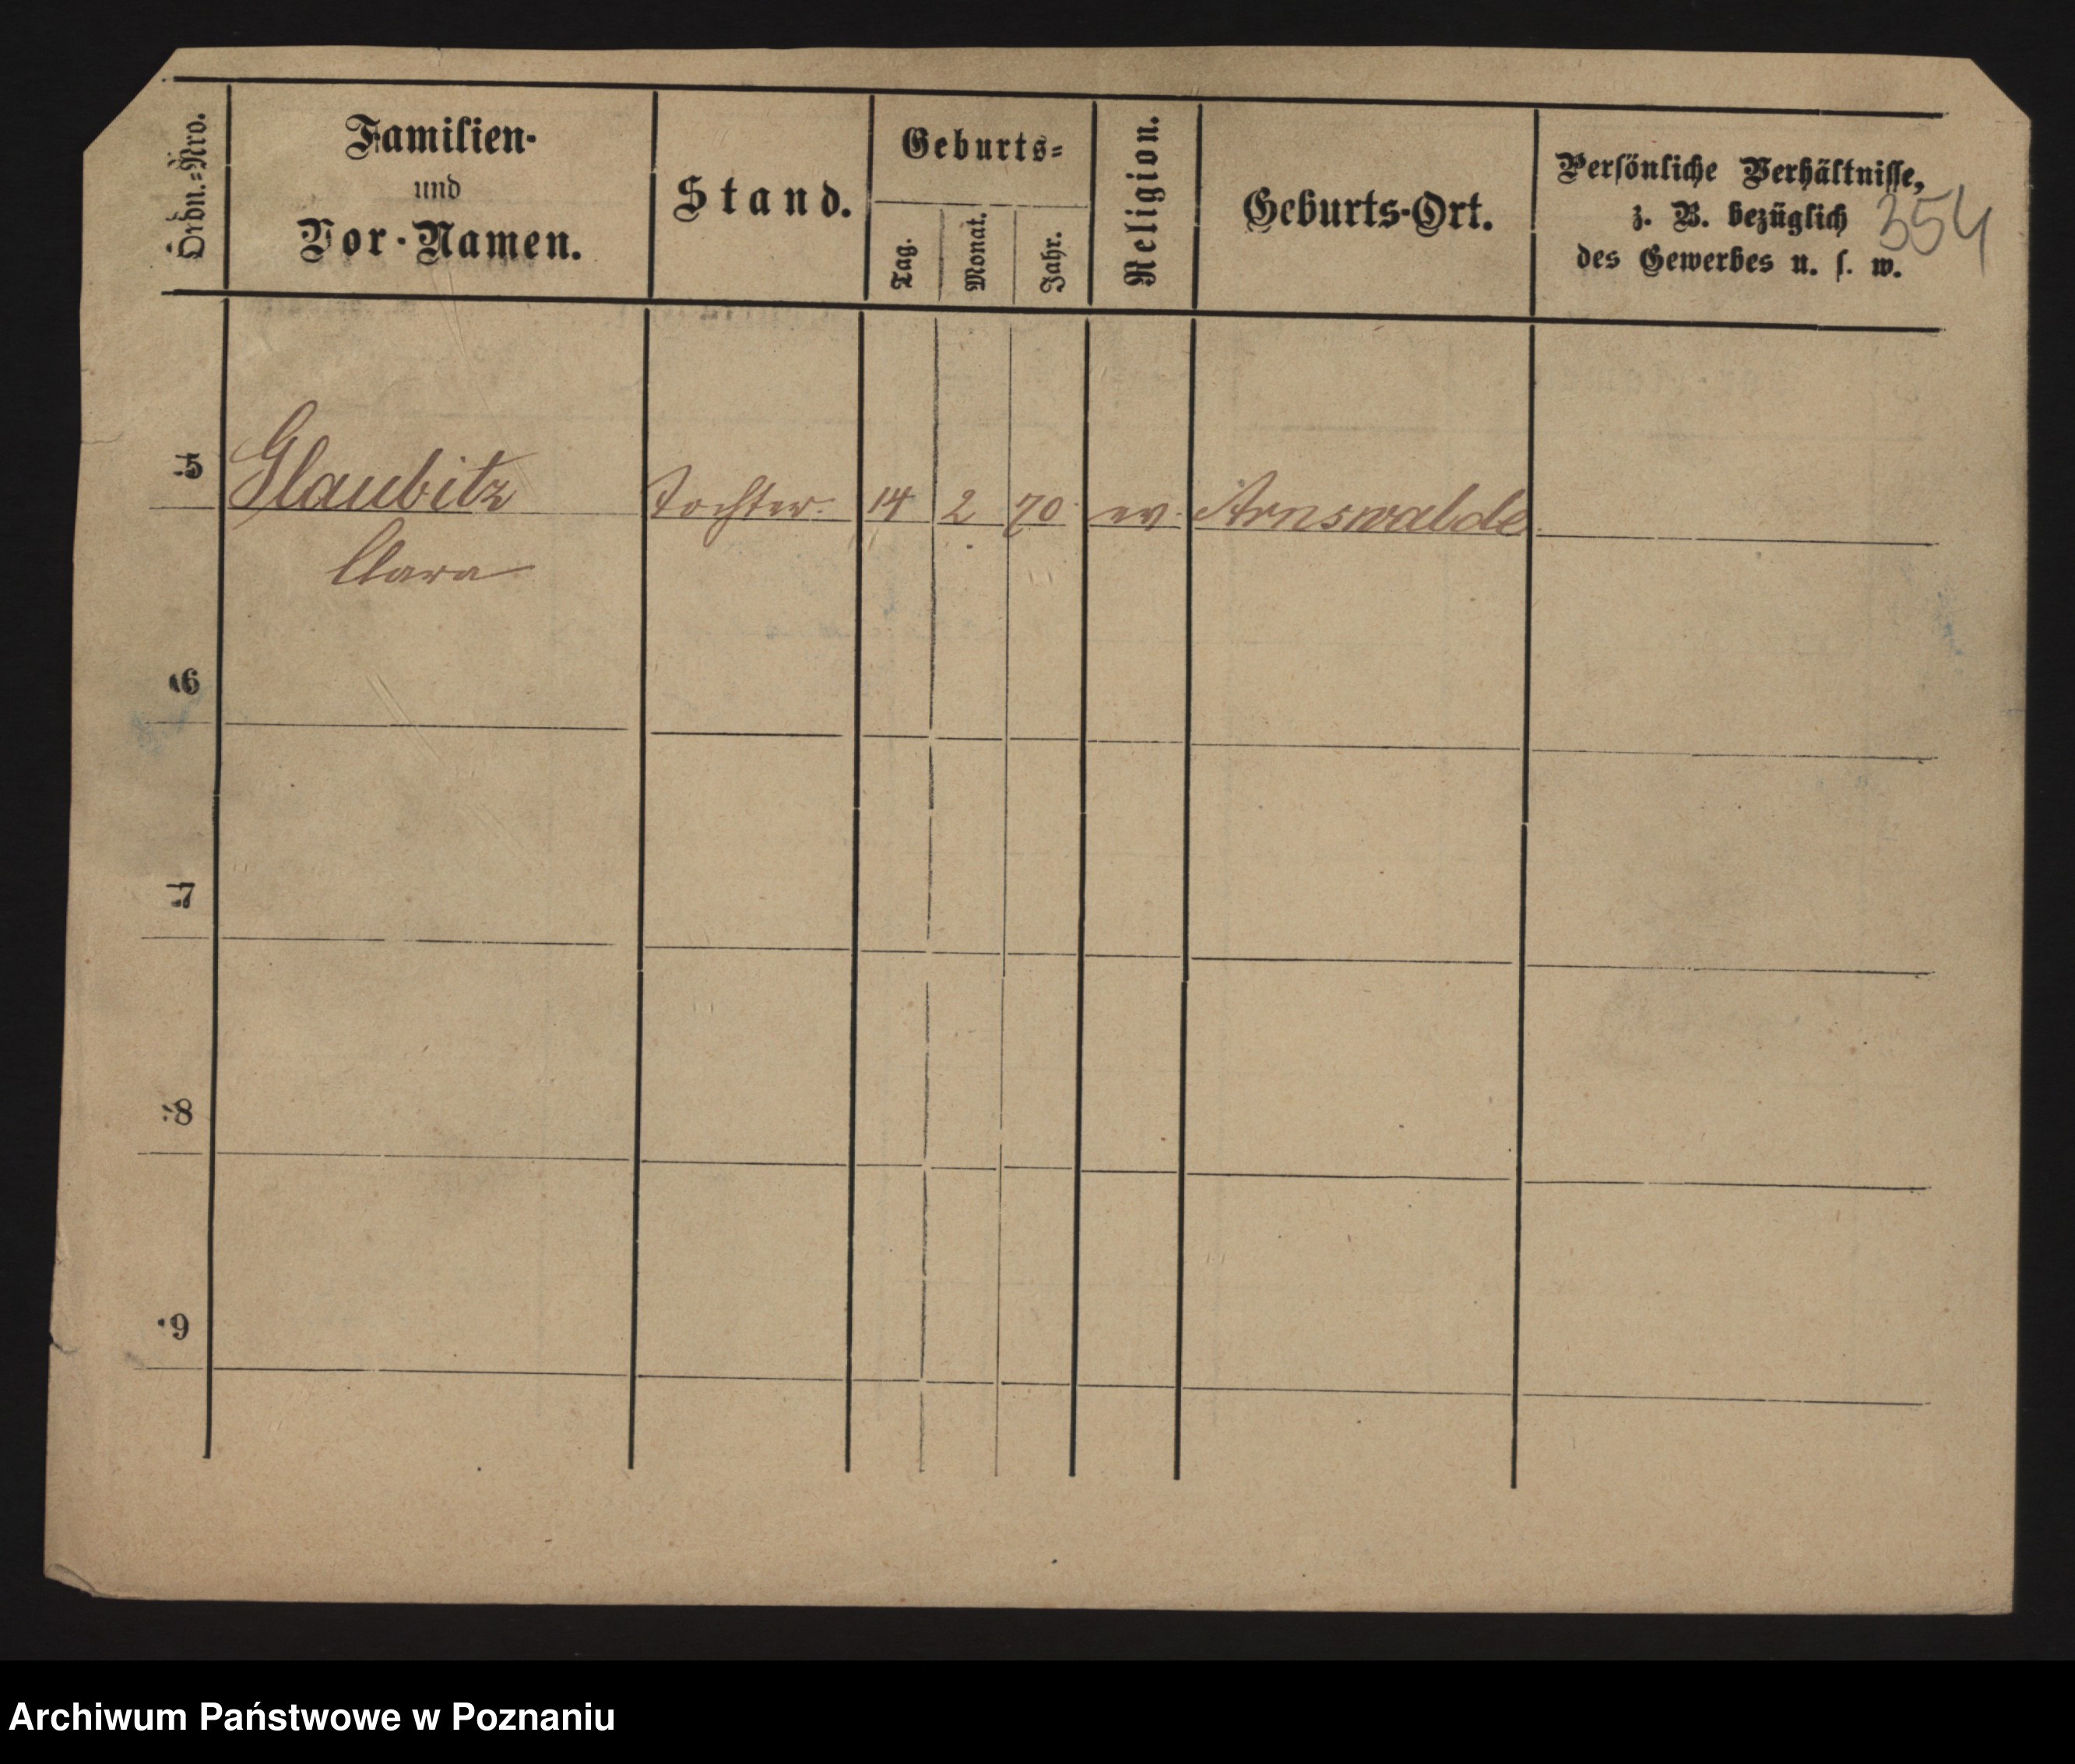 Ordn.=Nro.
Familien-
und
Vor-Namen.
Stand.
Geburts=
Tag.
Monat.
Jahr.
Religion.
Geburts-Ort.
Persönliche Verhältnisse,
z. B. bezüglich
des Gewerbes u. s. w.
354
5 Glaubitz Tochter. 14 2 70 ev. Arnswalde
Clara
6
7
8
9
Archiwum Państwowe w Poznaniu